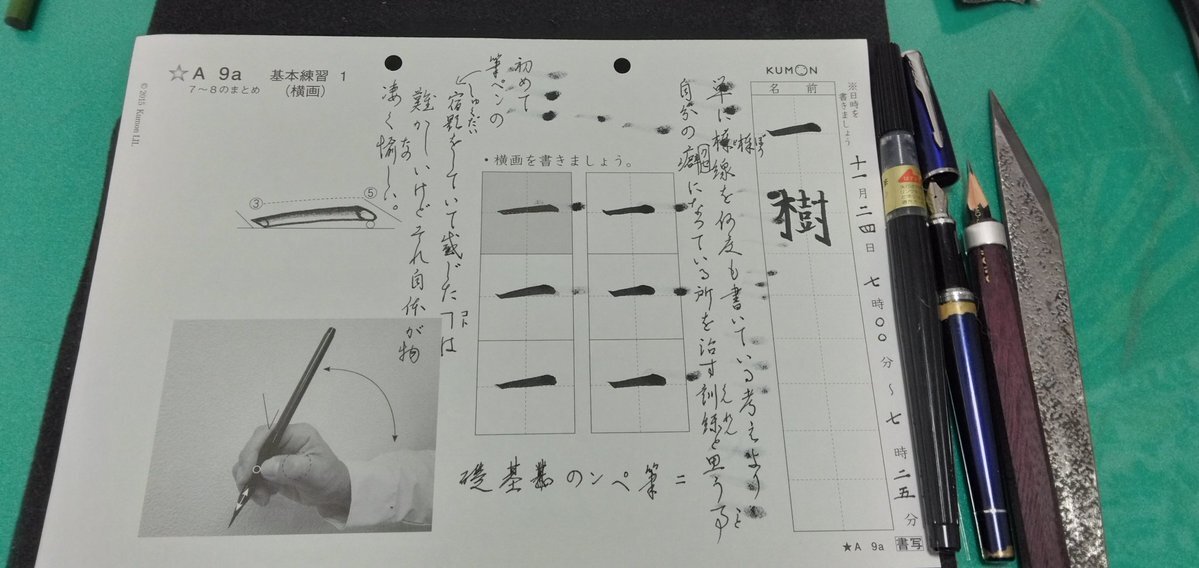 ☆A 9a 基本練習 1
7〜8のまとめ (横画)
© 2015 Kumon LIL
KUMON
名前
一樹
※日時を書きましょう
十一月二四日 七時〇〇分〜七時二五分
・横画を書きましょう。
一 一
一 一
一 一
③
⑤
初めて
筆ペンの
宿題をしていて感じたヿは
しゅくだい
コト
難かしいけどそれ自体が物
凄く愉しい。
な
単に横線を何度も書いている考えよりと
ぼう
自分の癖になっている所を治す訓練と思う事
くせ
くんれん
礎基のンペ筆=
★A 9a 書写